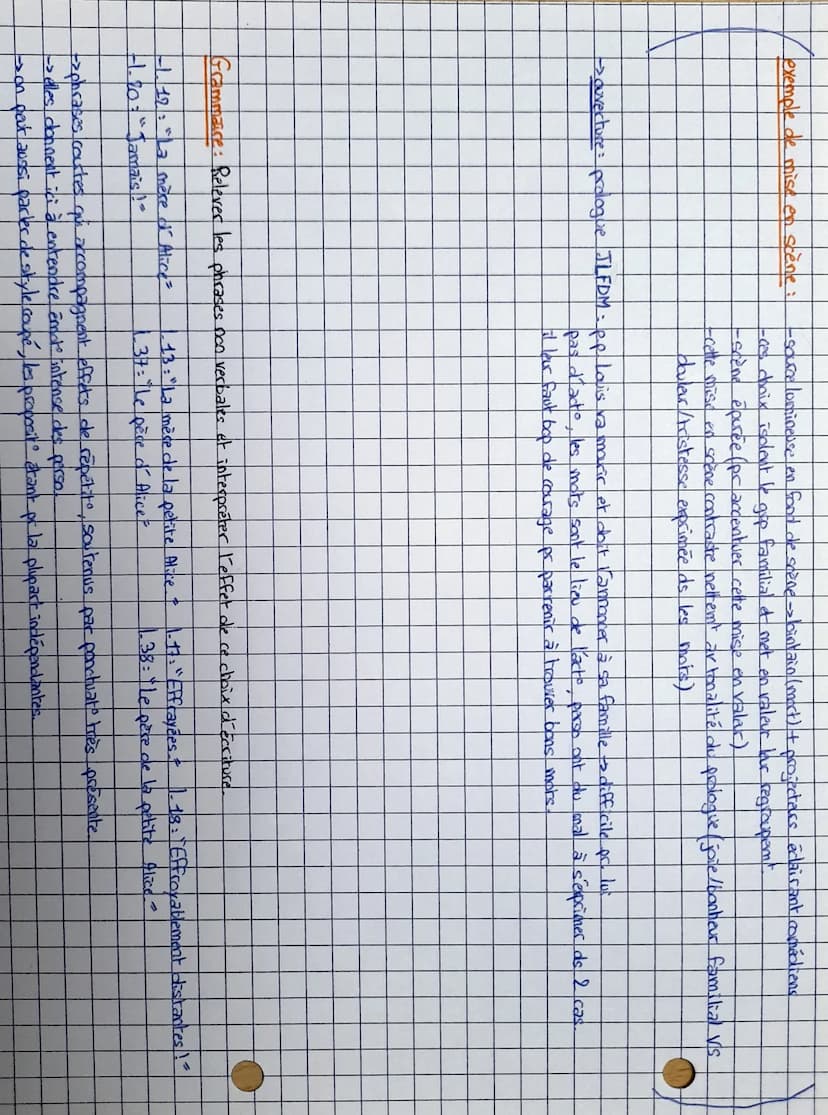 exemple de mise en scène : - source lumineuse en fond de scène → lointain (mort) + projecteurs éclairant comédiens
- ces choix isolent le grp familial et met en valeur leur regroupemt.
- scène épurée (pr accentuer cette mise en valeur)
- cette mise en scène contraste nettemt av tonalité du prologue (joie/bonheur familial VS
douleur/tristesse exprimée ds les mots)
→ ouverture : prologue JLFDM : p.p Louis va mourir et doit l'annoncer à sa famille → difficile pr lui
pas d'act°, les mots sont le lieu de l'act°, perso ont du mal à s'exprimer ds 2 cas.
il leur faut bcp de courage pr parvenir à trouver bons mots.
Grammaire : Relever les phrases non verbales et interpréter l'effet de ce choix d'écriture.
- l. 12 : "La mère d'Alice" l. 13 : "La mère de la petite Alice." l. 17 : "Effrayées." l. 18 : "Effroyablement distantes !"
- l. 20 : "Jamais !" l. 37 : "Le père d'Alice" l. 38 : "Le père de la petite Alice."
→ phrases courtes qui accompagnent effets de répétit°, soutenus par ponctuat° très présente.
→ elles donnent ici à entendre émot° intense des perso.
→ on peut aussi parler de style coupé, les proposit° étant pr la plupart indépendantes.